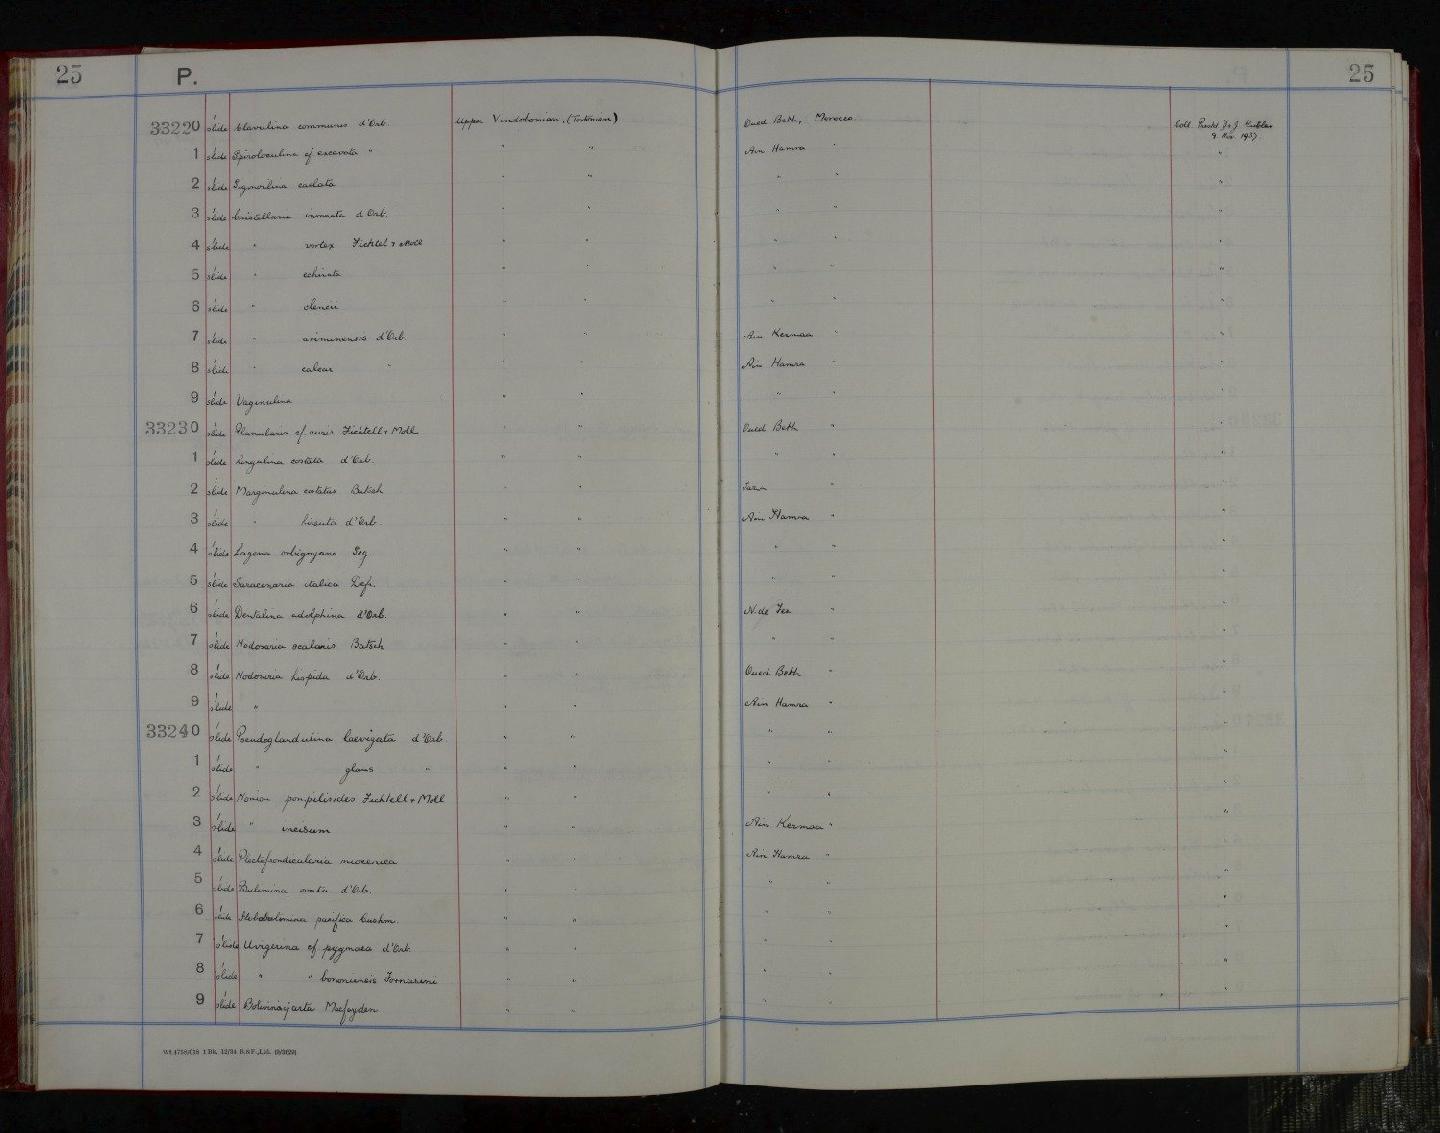 25 P. 25
33220 slide Clavulina communis d'Orb. Upper Vindobonian, (Tortonian) Oued Beth, Morocco Coll. Presd. J. & J.
9 Nov. 1937.
1 slide Spiroloculina cf excavata " " " Ain Hamra " "
2 slide Sigmoilina caelata " " " " "
3 slide Cristellaria d'Orb. " " " " "
4 slide " vortex Fichtel & Moll " " " " "
5 slide " echinata " " " " "
6 slide " " " " " "
7 slide " ariminensis d'Orb. " " Ain Kermaa " "
8 slide " calcar " " " Ain Hamra " "
9 slide Vaginulina " " " " "
33230 slide Planularia cf. auris Fichtell & Moll " " Oued Beth " "
1 slide Lingulina costata d'Orb. " " " " "
2 slide Marginulina costatus Batsch " " Taza " "
3 slide " hirsuta d'Orb. " " Ain Hamra " "
4 slide Lagena orbignyana Seg " " " " "
5 slide Saracenaria italica Defr. " " " " "
6 slide Dentalina adolphina d'Orb. " " N. de Fez " "
7 slide Nodosaria scalaris Batsch " " " " "
8 slide Nodosaria hispida d'Orb. " " Oued Beth " "
9 slide " " " Ain Hamra " "
33240 slide Pseudoglandulina laevigata d'Orb. " " " " "
1 slide " glans " " " " " "
2 slide Nonion pompilioides Fichtell & Moll " " " " "
3 slide " incisum " " Ain Kermaa " "
4 slide Plectofrondicularia miocenica " " Ain Hamra " "
5 slide Bulimina d'Orb. " " " " "
6 slide pacifica Cushm. " " " " "
7 slide Uvigerina cf. pygmaea d'Orb. " " " " "
8 slide " " bononiensis Fornasini " " " " "
9 slide Macfayden " " " " "